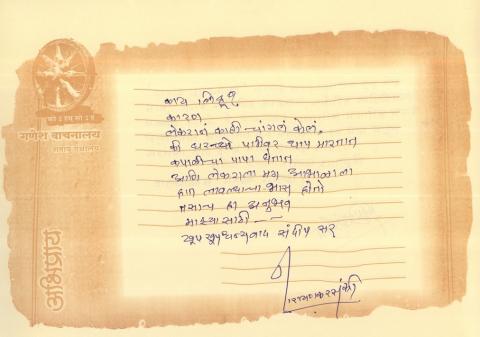 गणेश वाचनालय
अभिप्राय
काय लिहू
कारण
लेकरानं काही चांगलं केलं,
की घरच्ये पाठीवर थाप मारतात
कपाळीचा पापा घेतात
आणि लेकराला मग आभाळाला
हात लावल्याचा भास होतो
तसाच हा अनुभव
माझ्यासाठी - ~
खूप खूप धन्यवाद संदीप सर